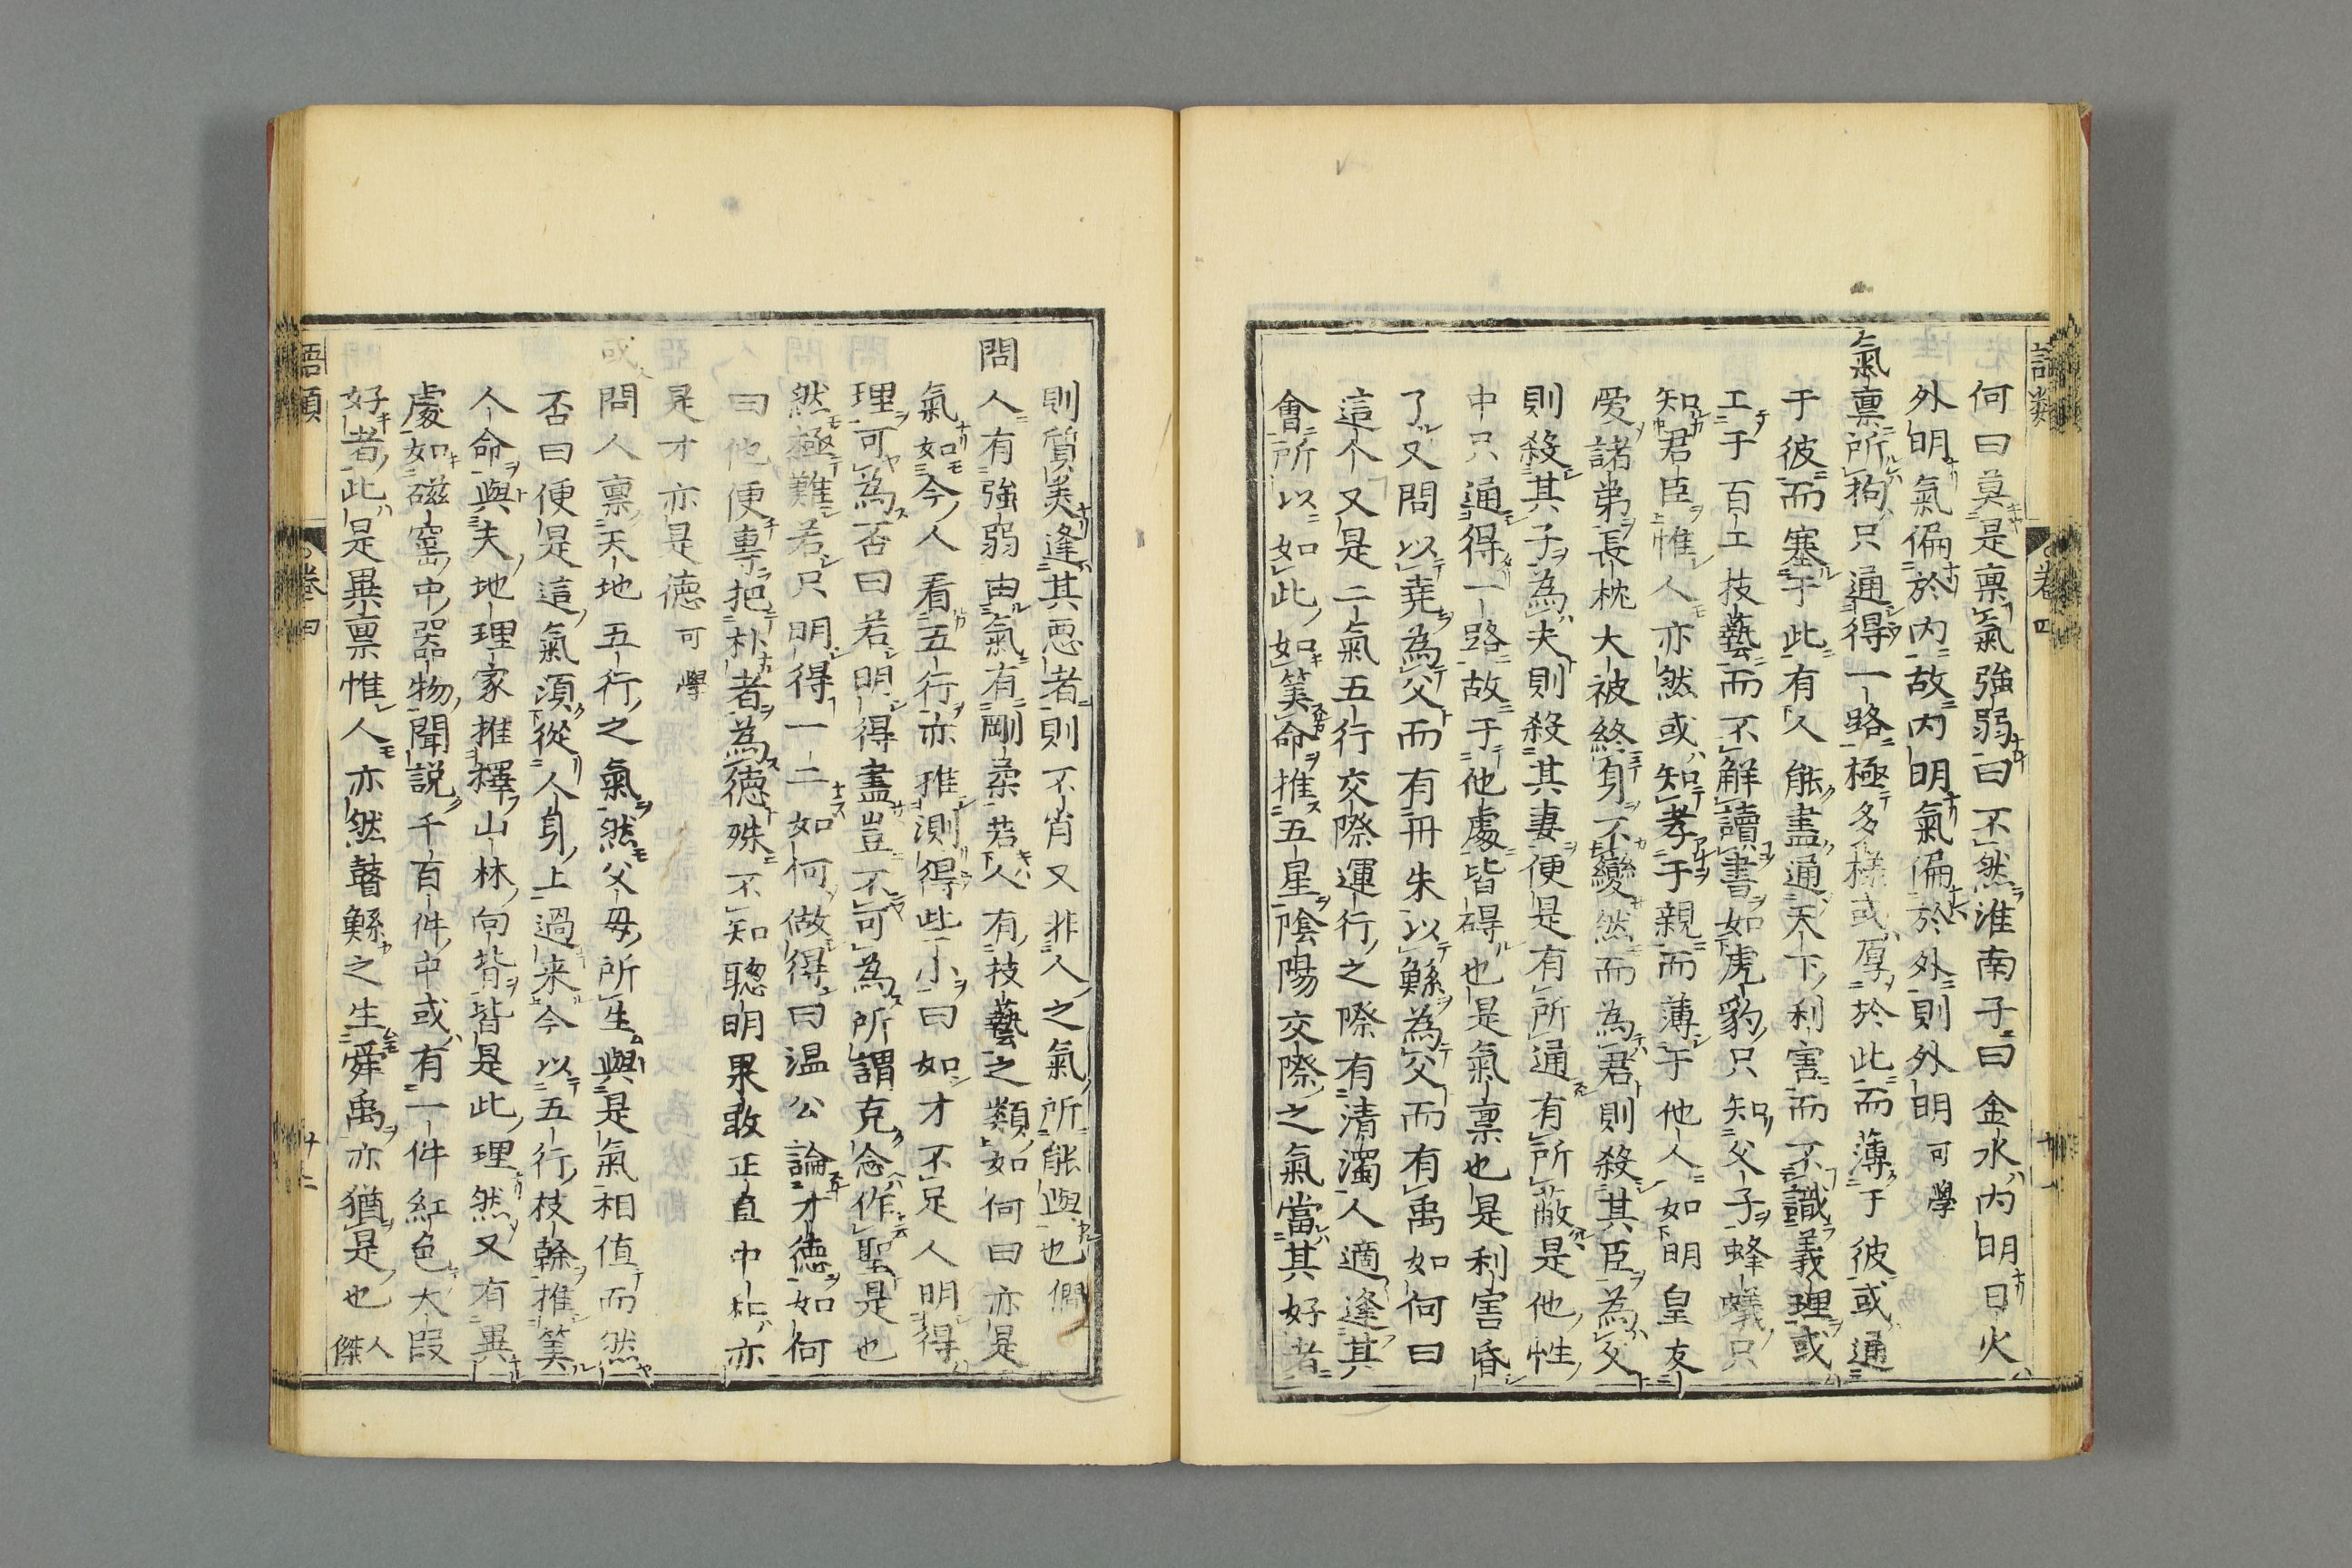 語類
卷四
十一
何曰莫是禀氣強弱曰不然淮南子曰金水內明日火
外明氣偏於內故內明氣偏於外則外明 可學
氣禀所拘只通得一路極多樣或厚於此而薄于彼或通
于彼而塞于此有人能盡通天下利害而不識義理或
工于百工技藝而不解讀書如虎豹只知父子蜂蟻只
知君臣惟人亦然或知孝于親而薄于他人如明皇友
愛諸弟長枕大被終身不變然而為君則殺其臣為父
則殺其子為夫則殺其妻便是有所通有所蔽是他性
中只通得一路故于他處皆碍也是氣禀也是利害昏
了又問以堯為父而有丹朱以鯀為父而有禹如何曰
這个又是二氣五行交際運行之際有清濁人適逢其
會所以如此如筭命推五星陰陽交際之氣當其好者
則質美逢其悪者則不肖又非人之氣所能與也 僩
問人有強弱由氣有剛柔若人有技藝之類如何曰亦是
氣如今人看五行亦推測得些小曰如才不足人明得
理可為否曰若明得盡豈不可為所謂克念作聖是也
然極難若只明得一二如何做得曰温公論才德如何
曰他便專把朴者為德殊不知聰明果敢正直中和亦
是才亦是德 可學
或問人禀天地五行之氣然父母所生與是氣相值而然
否曰便是這氣須從人身上過来今以五行枝幹推筭
人命與夫地理家推擇山林向背皆是此理然又有異
處如磁窰中器物聞說千百件中或有一件紅色大段
好者此是異禀惟人亦然瞽鯀之生舜禹亦猶是也 人傑
語類
卷四
十二